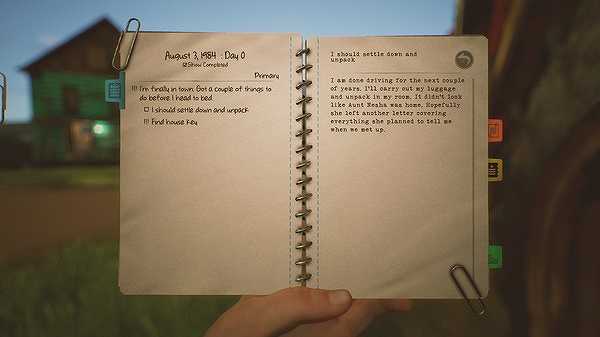 August 3, 1984 : Day 0
Show Completed
Primary
!!! I'm finally in town. Got a couple of things to
do before I head to bed.
I should settle down and unpack
!!! Find house key
I should settle down and
unpack
I am done driving for the next couple
of years. I'll carry out my luggage
and unpack in my room. It didn't look
like Aunt Nesha was home. Hopefully
she left another letter covering
everything she planned to tell me
when we met up.